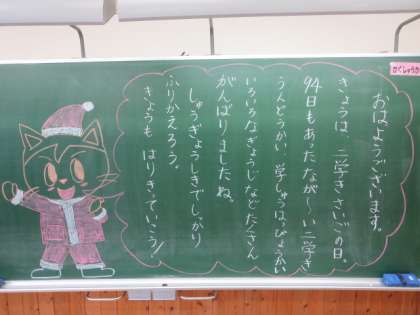 おはようございます。
きょうは、二学きさいごの日。
94日もあったなが～い二学き
うんどうかい、学しゅうはっぴょうかい
いろいろなぎょうじなどたくさん
がんばりましたね。
しゅうぎょうしきでしっかり
ふりかえろう。
きょうも はりきっていこう!
がくしゅうか